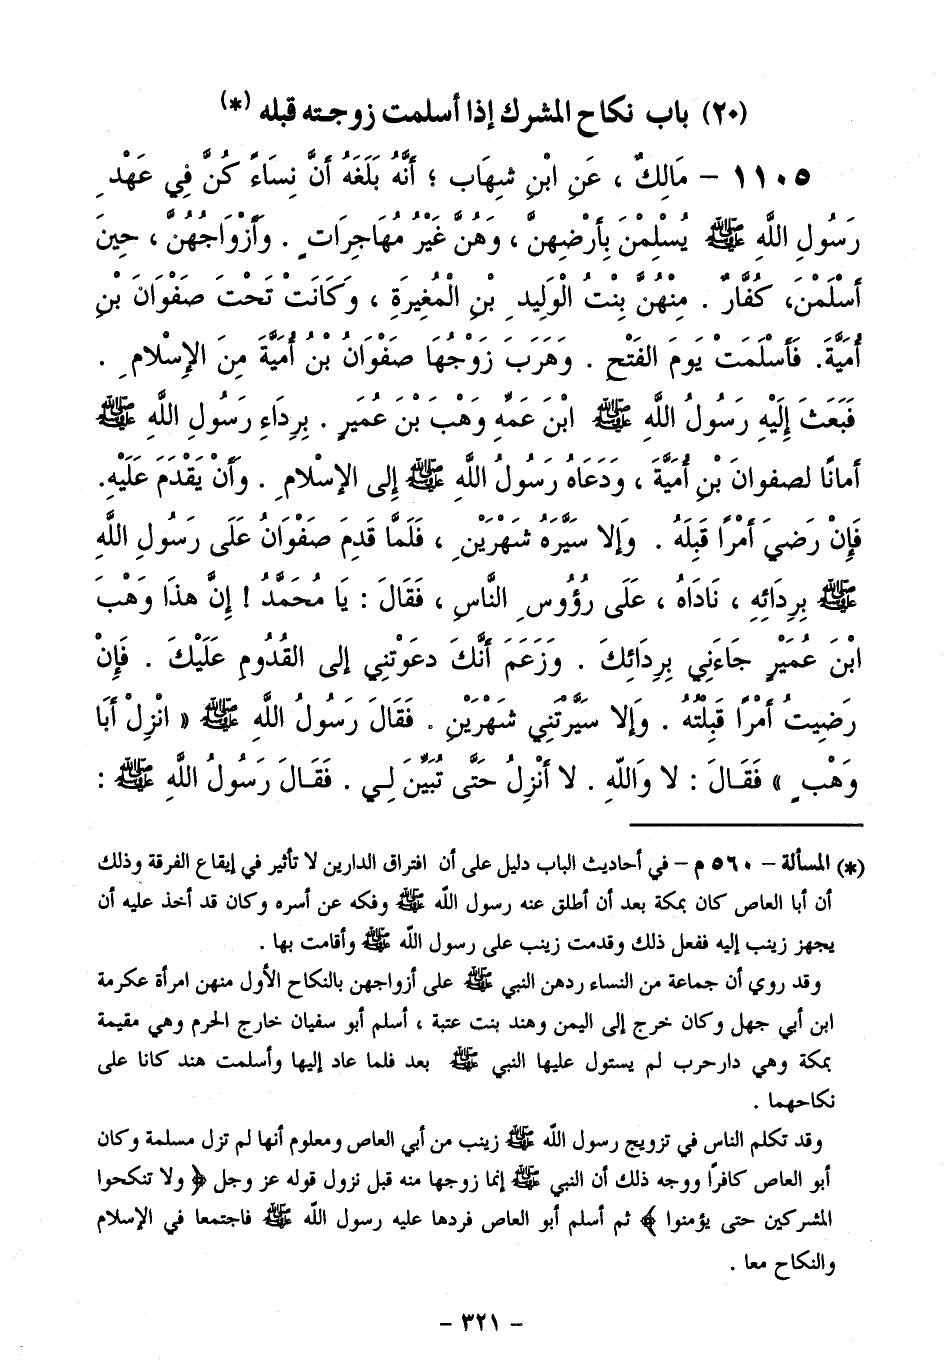 (٢٠) باب نكاح المشرك إذا أسلمت زوجته قبله (*)
١١٠٥ – مَالِكٌ ، عَنِ ابْنِ شِهَاب ؛ أَنَّهُ بَلَغَهُ أَنَّ نِسَاءً كُنَّ فِي عَهْدِ
رَسُولِ اللَّهِ ﷺ يُسْلِمْنَ بِأَرْضِهِنَّ ، وَهُنَّ غَيْرُ مُهَاجِرَاتٍ . وَأَزْوَاجُهُنَّ ، حِينَ
أَسْلَمْنَ، كُفَّارٌ . مِنْهُنَّ بِنْتُ الْوَلِيدِ بْنِ الْمُغِيرَةِ ، وَكَانَتْ تَحْتَ صَفْوَانَ بْنِ
أُمَيَّةَ. فَأَسْلَمَتْ يَومَ الفَتْحِ . وَهَرَبَ زَوْجُهَا صَفْوَانُ بْنُ أُمَيَّةَ مِنَ الإِسْلامِ .
فَبَعَثَ إِلَيْهِ رَسُولُ اللَّهِ ﷺ ابْنَ عَمِّهِ وَهْبَ بْنَ عُمَيرٍ . بِرِدَاءِ رَسُولِ اللَّهِ ﷺ
أمانًا لصفوانَ بْنِ أُمَيَّةَ ، وَدَعَاهُ رَسُولُ اللَّهِ ﷺ إِلى الإِسْلامِ . وَأَنْ يَقْدَمَ عَلَيْهِ.
فَإِنْ رَضِيَ أَمْرًا قَبِلَهُ . وَإِلا سَيَّرَهُ شَهْرَيْنِ ، فَلَمَّا قَدِمَ صَفْوَانُ عَلَى رَسُولِ اللَّهِ
ﷺ بِرِدَائِهِ ، نَادَاهُ ، عَلَى رُؤُوسِ النَّاسِ ، فَقَالَ : يَا مُحَمَّدُ ! إِنَّ هذَا وَهْبَ
ابْنَ عُمَيْرٍ جَاءَنِي بِرِدَائِكَ . وَزَعَمَ أَنَّكَ دَعَوْتَنِي إِلى القُدُومِ عَلَيْكَ . فَإِنْ
رَضِيتُ أَمْرًا قَبِلْتُهُ . وَإِلا سَيَّرْتَنِي شَهْرَيْنِ . فَقَالَ رَسُولُ اللَّهِ ﷺ « انْزِلْ أَبَا
وَهْبٍ » فَقَالَ : لا وَاللَّهِ . لا أَنْزِلُ حَتَّى تُبَيِّنَ لِي . فَقَالَ رَسُولُ اللَّهِ ﷺ :
(*) المسألة – ٥٦٠ م – في أحاديث الباب دليل على أن افتراق الدارين لا تأثير في إيقاع الفرقة وذلك
أن أبا العاص كان بمكة بعد أن أطلق عنه رسول اللّه ﷺ وفكه عن أسره وكان قد أخذ عليه أن
يجهز زينب إليه ففعل ذلك وقدمت زينب على رسول اللّه ﷺ وأقامت بها .
وقد روي أن جماعة من النساء ردهن النبي ﷺ على أزواجهن بالنكاح الأول منهن امرأة عكرمة
ابن أبي جهل وكان خرج إلى اليمن وهند بنت عتبة ، أسلم أبو سفيان خارج الحرم وهي مقيمة
بمكة وهي دارحرب لم يستول عليها النبي ﷺ بعد فلما عاد إليها وأسلمت هند كانا على
نكاحهما .
وقد تكلم الناس في تزويج رسول اللّه ﷺ زينب من أبي العاص ومعلوم أنها لم تزل مسلمة وكان
أبو العاص كافرًا ووجه ذلك أن النبي ﷺ إنما زوجها منه قبل نزول قوله عز وجل ﴿ ولا تنكحوا
المشركين حتى يؤمنوا ﴾ ثم أسلم أبو العاص فردها عليه رسول اللّه ﷺ فاجتمعا في الإسلام
والنكاح معا .
– ٣٢١ –